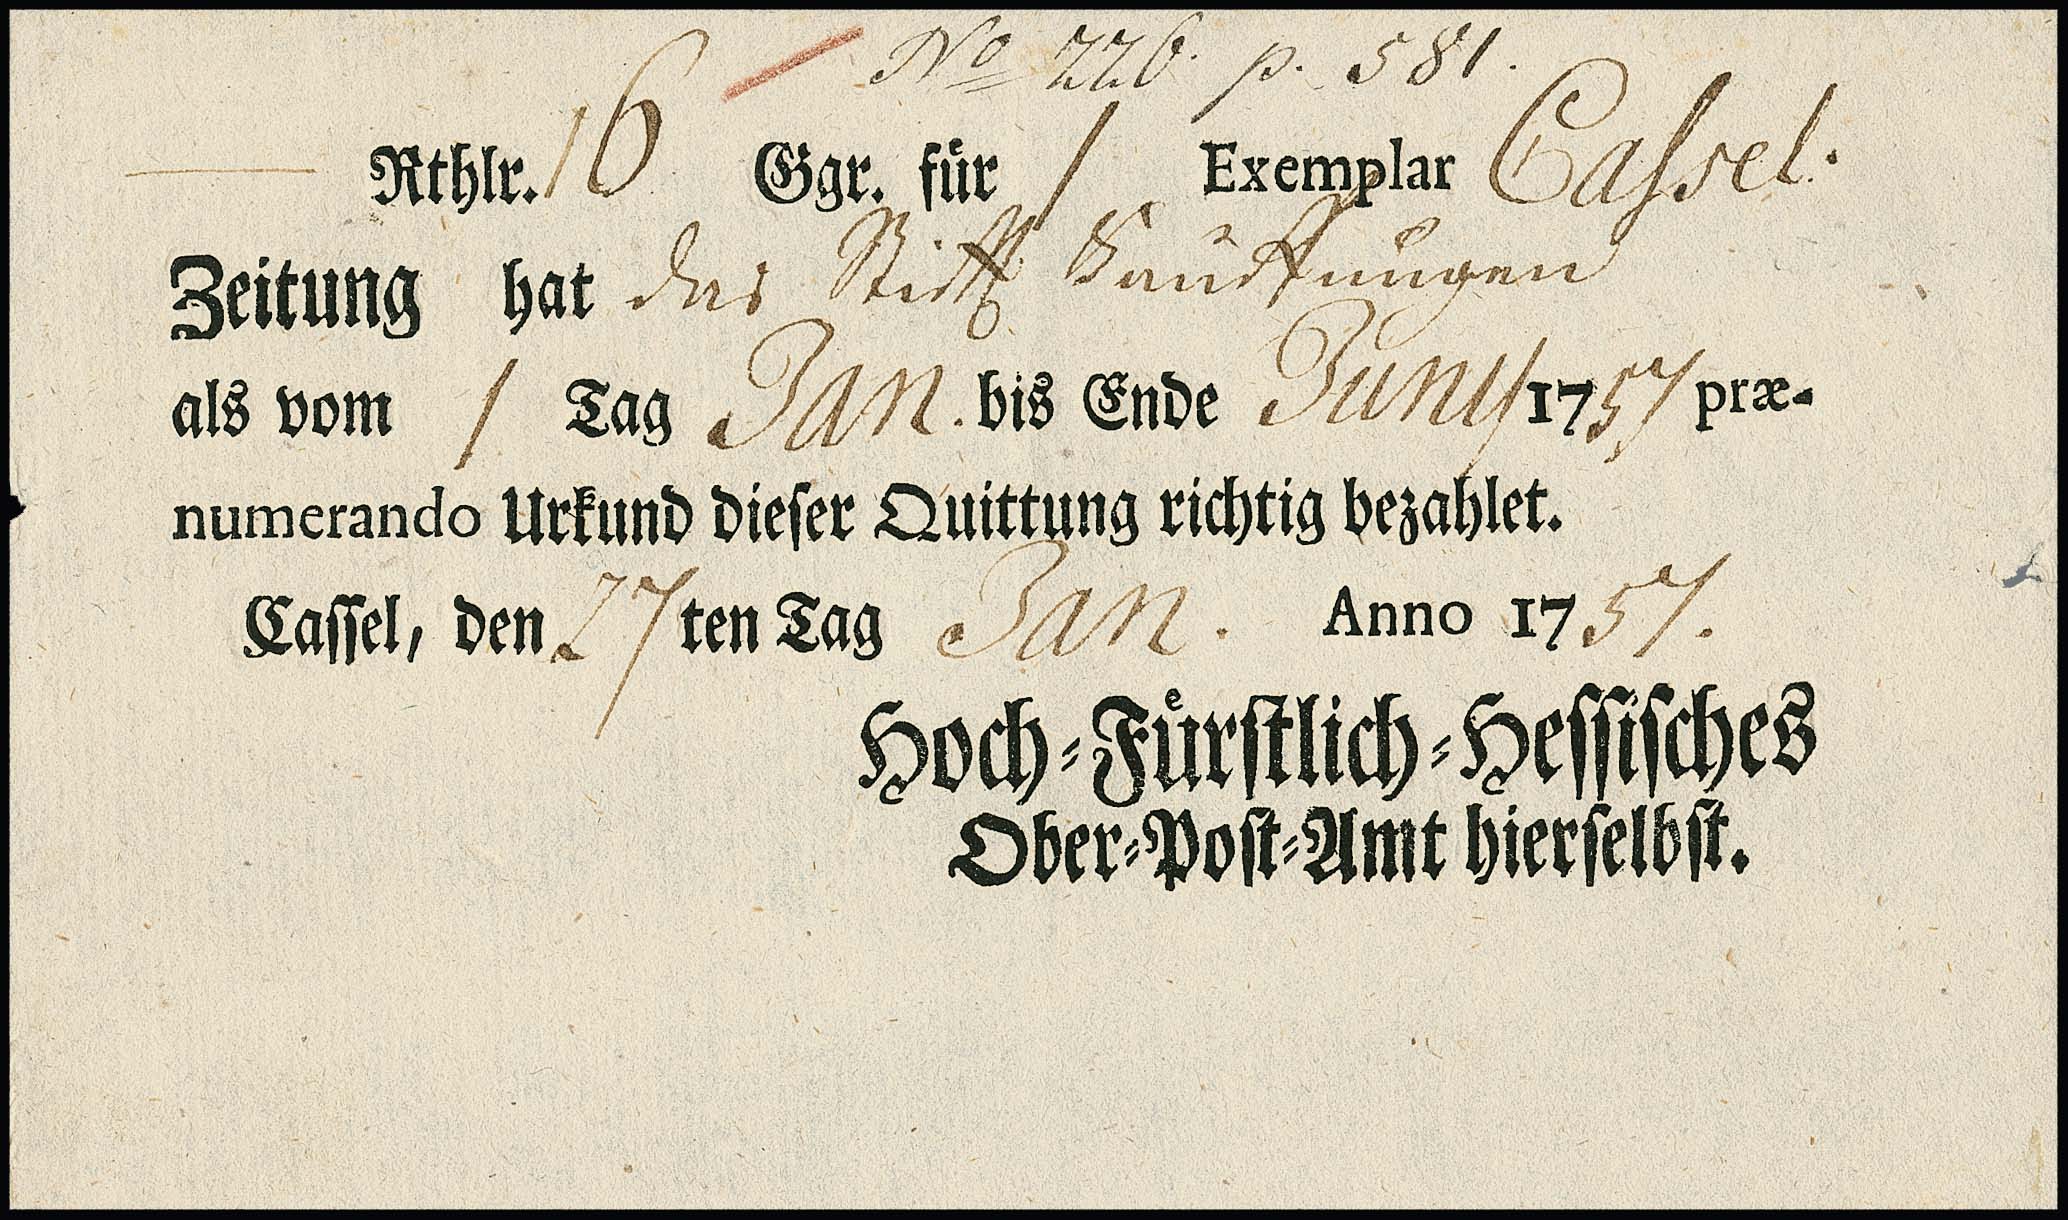 No 226. p. 581.
— Rthlr. 16 Ggr. für 1 Exemplar Cassel.
Zeitung hat das Stifft Kauffungen
als vom 1 Tag Jan. bis Ende Juny 1757 præ-
numerando Urkund dieser Quittung richtig bezahlet.
Cassel, den 27 ten Tag Jan. Anno 1757.
Hoch-Fürstlich-Hessisches
Ober-Post-Amt hierselbst.